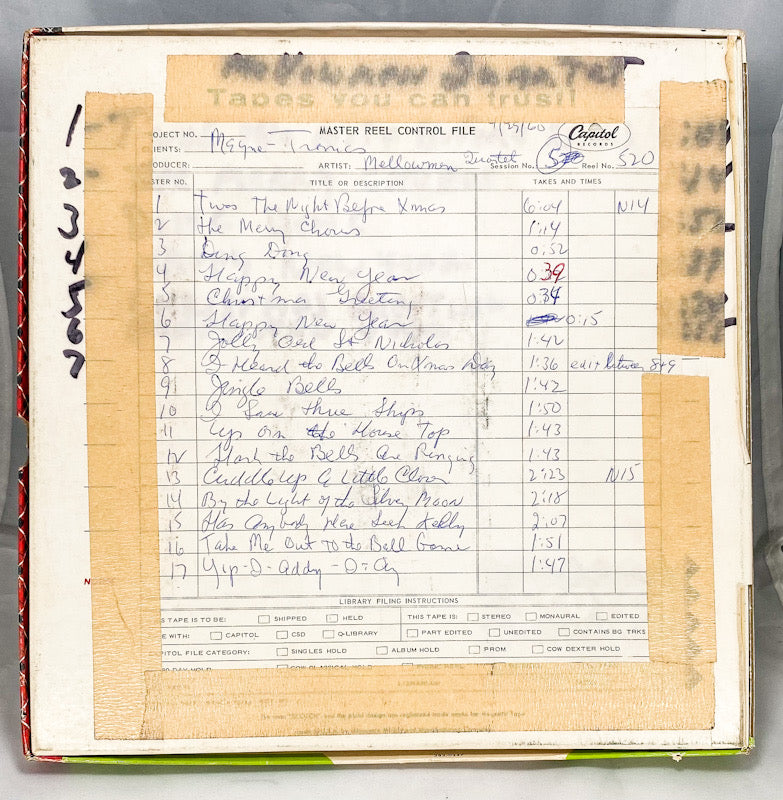 Tapes you can trust!
MASTER REEL CONTROL FILE
9/29/60
Capitol
RECORDS
OJECT NO.
IENTS: Magne-Tronics
ODUCER:
ARTIST: Mellowmen Quartet
Session No.
Reel No. 520
STER NO. TITLE OR DESCRIPTION TAKES AND TIMES
1 Twas The Night Before Xmas 6:04 N14
2 The Merry Chorus 1:14
3 Ding Dong 0:52
4 Happy New Year 0:39
5 Christmas Greeting 0:34
6 Happy New Year 0:15
7 Jolly Old St Nicholas 1:42
8 I Heard the Bells On Xmas Day 1:36 edit between 8+9
9 Jingle Bells 1:42
10 I Saw Three Ships 1:50
11 Up on the House Top 1:43
12 Hark the Bells Are Ringing 1:43
13 Cuddle Up A Little Closer 2:23 N15
14 By the Light of the Silvery Moon 2:18
15 Has Anybody Here Seen Kelly 2:07
16 Take Me Out To the Ball Game 1:51
17 Yip-I-Addy-I-Ay 1:47
LIBRARY FILING INSTRUCTIONS
S TAPE IS TO BE: SHIPPED HELD THIS TAPE IS: STEREO MONAURAL EDITED
E WITH: CAPITOL CSD Q-LIBRARY PART EDITED UNEDITED CONTAINS BG TRKS
PITOL FILE CATEGORY: SINGLES HOLD ALBUM HOLD PROM COW DEXTER HOLD
DAY HOLD COW CLASSICAL HOLD